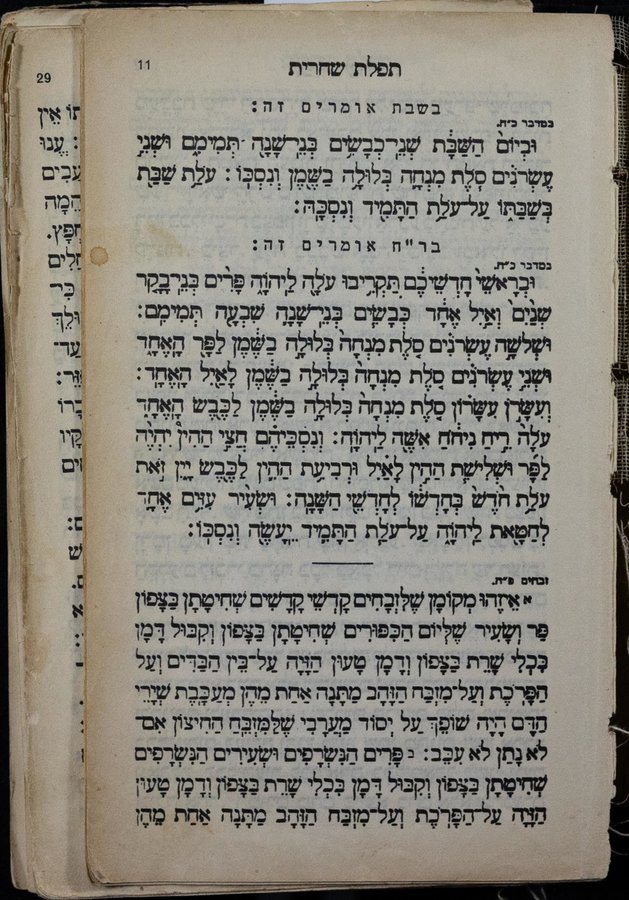 11
תפלת שחרית
בשבת אומרים זה:
במדבר כ״ח.
וּבְיוֹם֙ הַשַּׁבָּ֔ת שְׁנֵֽי־כְבָשִׂ֥ים בְּנֵֽי־שָׁנָ֖ה תְּמִימִ֑ם וּשְׁנֵ֣י
עֶשְׂרֹנִ֗ים סֹ֧לֶת מִנְחָ֛ה בְּלוּלָ֥ה בַשֶּׁ֖מֶן וְנִסְכּֽוֹ: עֹלַ֥ת שַׁבַּ֖ת
בְּשַׁבַּתּ֑וֹ עַל־עֹלַ֥ת הַתָּמִ֖יד וְנִסְכָּֽהּ:
בר״ח אומרים זה:
במדבר כ״ח.
וּבְרָאשֵׁי֙ חָדְשֵׁיכֶ֔ם תַּקְרִ֥יבוּ עֹלָ֖ה לַֽיהוָֹ֑ה פָּרִ֨ים בְּנֵֽי־בָקָ֤ר
שְׁנַ֙יִם֙ וְאַ֣יִל אֶחָ֔ד כְּבָשִׂ֧ים בְּנֵֽי־שָׁנָ֛ה שִׁבְעָ֖ה תְּמִימִֽם:
וּשְׁלֹשָׁ֣ה עֶשְׂרֹנִ֗ים סֹ֤לֶת מִנְחָה֙ בְּלוּלָ֣ה בַשֶּׁ֔מֶן לַפָּ֖ר הָֽאֶחָ֑ד
וּשְׁנֵ֣י עֶשְׂרֹנִ֗ים סֹ֤לֶת מִנְחָה֙ בְּלוּלָ֣ה בַשֶּׁ֔מֶן לָאַ֖יִל הָֽאֶחָֽד:
וְעִשָּׂרֹ֣ן עִשָּׂר֗וֹן סֹ֤לֶת מִנְחָה֙ בְּלוּלָ֣ה בַשֶּׁ֔מֶן לַכֶּ֖בֶשׂ הָֽאֶחָ֑ד
עֹלָה֙ רֵ֣יחַ נִיחֹ֔חַ אִשֶּׁ֖ה לַֽיהוָֹֽה: וְנִסְכֵּיהֶ֗ם חֲצִ֣י הַהִין֩ יִהְיֶ֨ה
לַפָּ֜ר וּשְׁלִישִׁ֧ת הַהִ֣ין לָאַ֗יִל וּרְבִיעִ֥ת הַהִ֛ין לַכֶּ֖בֶשׂ יָ֑יִן זֹ֣את
עֹלַ֥ת חֹ֙דֶשׁ֙ בְּחָדְשׁ֔וֹ לְחָדְשֵׁ֖י הַשָּׁנָֽה: וּשְׂעִ֨יר עִזִּ֥ים אֶחָ֛ד
לְחַטָּ֖את לַֽיהוָֹ֑ה עַל־עֹלַ֧ת הַתָּמִ֛יד יֵֽעָשֶׂ֖ה וְנִסְכּֽוֹ:
זבחים פ״ה.
א אֵיזֶהוּ מְקוֹמָן שֶׁלַּזְּבָחִים קָדְשֵׁי קָדָשִׁים שְׁחִיטָתָן בַּצָּפוֹן
פַּר וְשָׂעִיר שֶׁלְּיוֹם הַכִּפּוּרִים שְׁחִיטָתָן בַּצָּפוֹן וְקִבּוּל דָּמָן
בִּכְלֵי שָׁרֵת בַּצָּפוֹן וְדָמָן טָעוּן הַזָּיָה עַל־בֵּין הַבַּדִּים וְעַל
הַפָּרֹכֶת וְעַל־מִזְבַּח הַזָּהָב מַתָּנָה אַחַת מֵהֶן מְעַכָּבֶת שְׁיָרֵי
הַדָּם הָיָה שׁוֹפֵךְ עַל יְסוֹד מַעֲרָבִי שֶׁלַּמִּזְבֵּחַ הַחִיצוֹן אִם־
לֹא נָתַן לֹא עִכֵּב: ב פָּרִים הַנִּשְׂרָפִים וּשְׂעִירִים הַנִּשְׂרָפִים
שְׁחִיטָתָן בַּצָּפוֹן וְקִבּוּל דָּמָן בִּכְלֵי שָׁרֵת בַּצָּפוֹן וְדָמָן טָעוּן
הַזָּיָה עַל־הַפָּרֹכֶת וְעַל־מִזְבַּח הַזָּהָב מַתָּנָה אַחַת מֵהֶן
29
תוֹ אֵין
הֵמָּה
חְפָּץ.